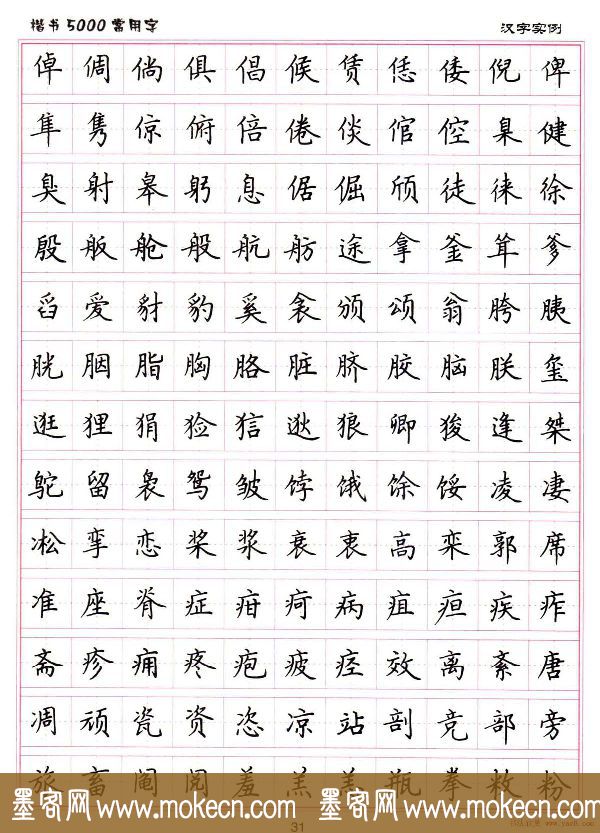 楷书5000常用字 汉字实例
倬 倜 倘 俱 倡 候 赁 恁 倭 倪 俾
隼 隽 倞 俯 倍 倦 倓 倌 倥 臬 健
臭 射 皋 躬 息 倨 倔 颀 徒 徕 徐
殷 舨 舱 般 航 舫 途 拿 釜 耸 爹
舀 爱 豺 豹 奚 衾 颁 颂 翁 胯 胰
胱 胭 脂 胸 胳 脏 脐 胶 脑 朕 玺
逛 狸 狷 猃 狺 逖 狼 卿 狻 逢 桀
鸵 留 袅 鸳 皱 饽 饿 馀 馁 凌 凄
凇 挛 恋 桨 浆 衰 衷 高 栾 郭 席
准 座 脊 症 疳 疴 病 疽 疸 疾 痄
斋 疹 痈 疼 疱 疲 痉 效 离 紊 唐
凋 顽 瓷 资 恣 凉 站 剖 竞 部 旁
旅 畜 阄 阅 羞 羔 恙 瓶 拳 敉 粉
墨客网 www.mokecn.com 墨客网 www.mokecn.com
31